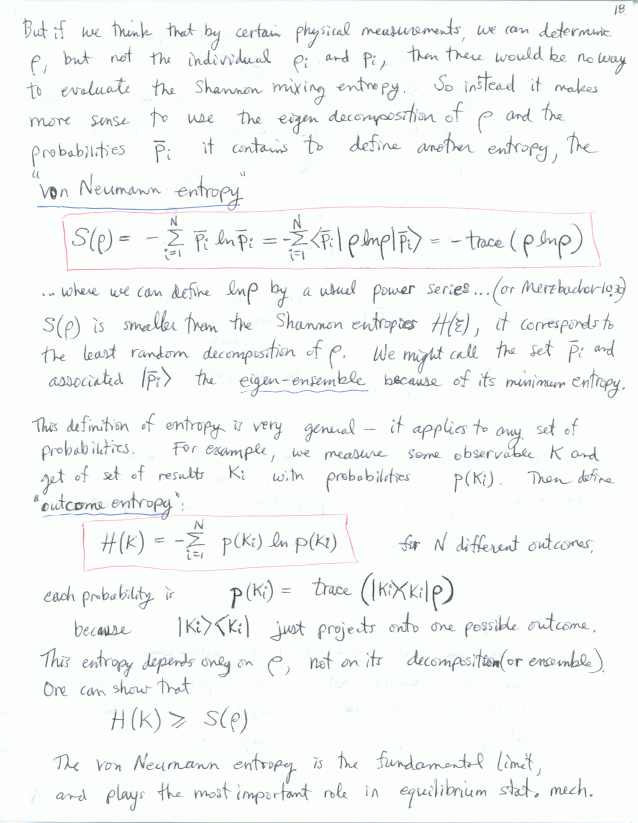 18
But if we think that by certain physical measurements, we can determine
ρ, but not the individual ρi and pi, then there would be no way
to evaluate the Shannon mixing entropy. So instead it makes
more sense to use the eigen decomposition of ρ and the
probabilities p̄i it contains to define another entropy, the
"von Neumann entropy"
S(ρ) = - Σ_{i=1}^{N} p̄i ln p̄i = - Σ_{i=1}^{N} <p̄i| ρ lnρ |p̄i> = - trace (ρ lnρ)
... where we can define lnρ by a usual power series... (or Merzbacher
S(ρ) is smaller than the Shannon entropies H(ε), it corresponds to
the least random decomposition of ρ. We might call the set p̄i and
associated |p̄i> the eigen-ensemble because of its minimum entropy.
This definition of entropy is very general — it applies to any set of
probabilities. For example, we measure some observable K and
get of set of results Ki with probabilities p(Ki). Then define
"outcome entropy":
H(K) = - Σ_{i=1}^{N} p(Ki) ln p(Ki) for N different outcomes,
each probability is p(Ki) = trace (|Ki><Ki|ρ)
because |Ki><Ki| just projects onto one possible outcome.
This entropy depends only on ρ, not on its decomposition (or ensemble).
One can show that
H(K) ⩾ S(ρ)
The von Neumann entropy is the fundamental limit,
and plays the most important role in equilibrium stat. mech.